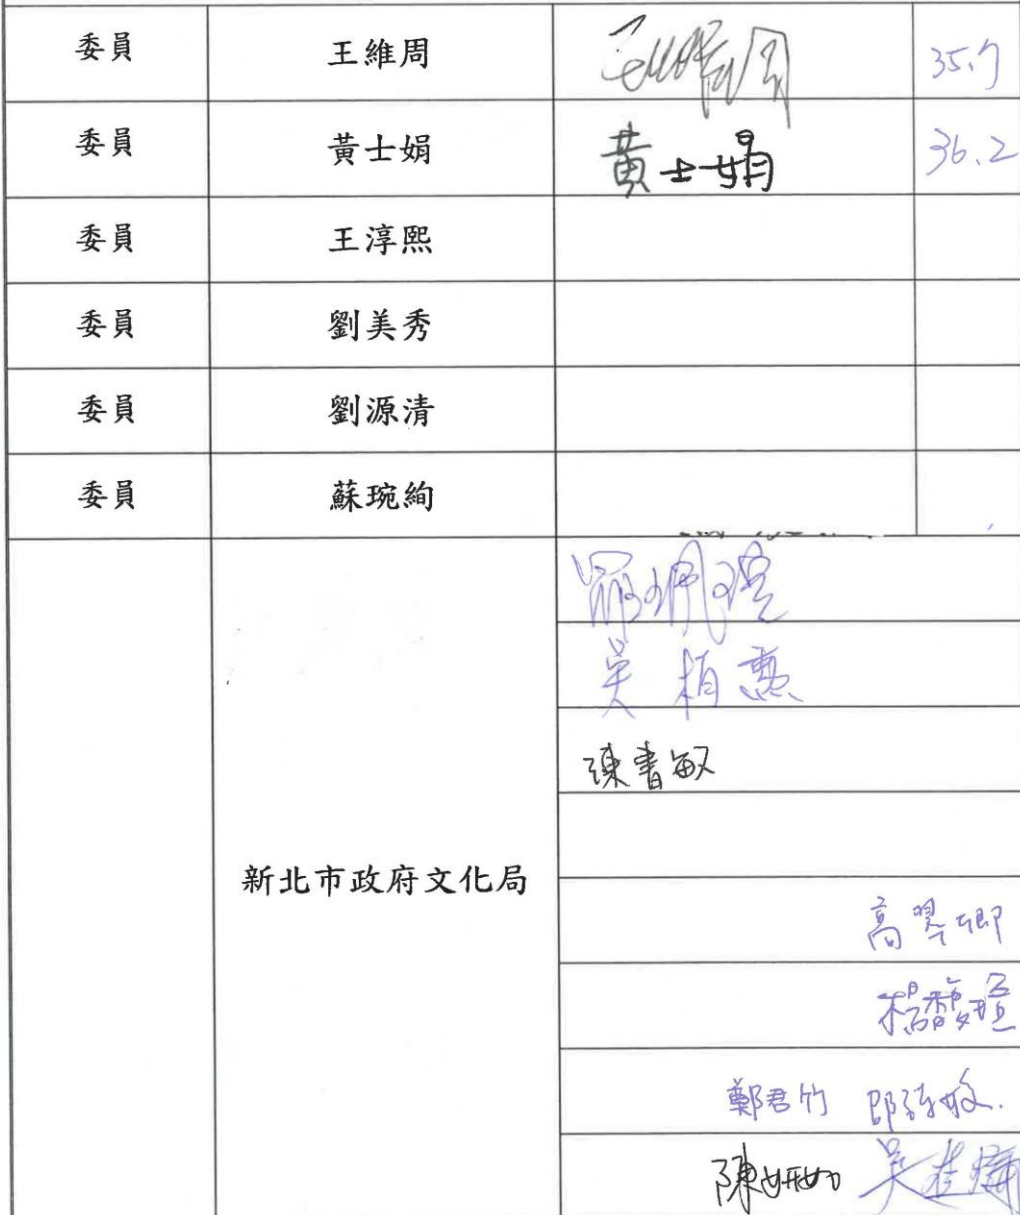 委員 王維周 王維周 35.7
委員 黃士娟 黃士娟 36.2
委員 王淳熙
委員 劉美秀
委員 劉源清
委員 蘇琬絢
新北市政府文化局
羅珮瑄
吳柏勳
陳書敏
高翠卿
楊馥瑄
鄭君竹
陳妍如